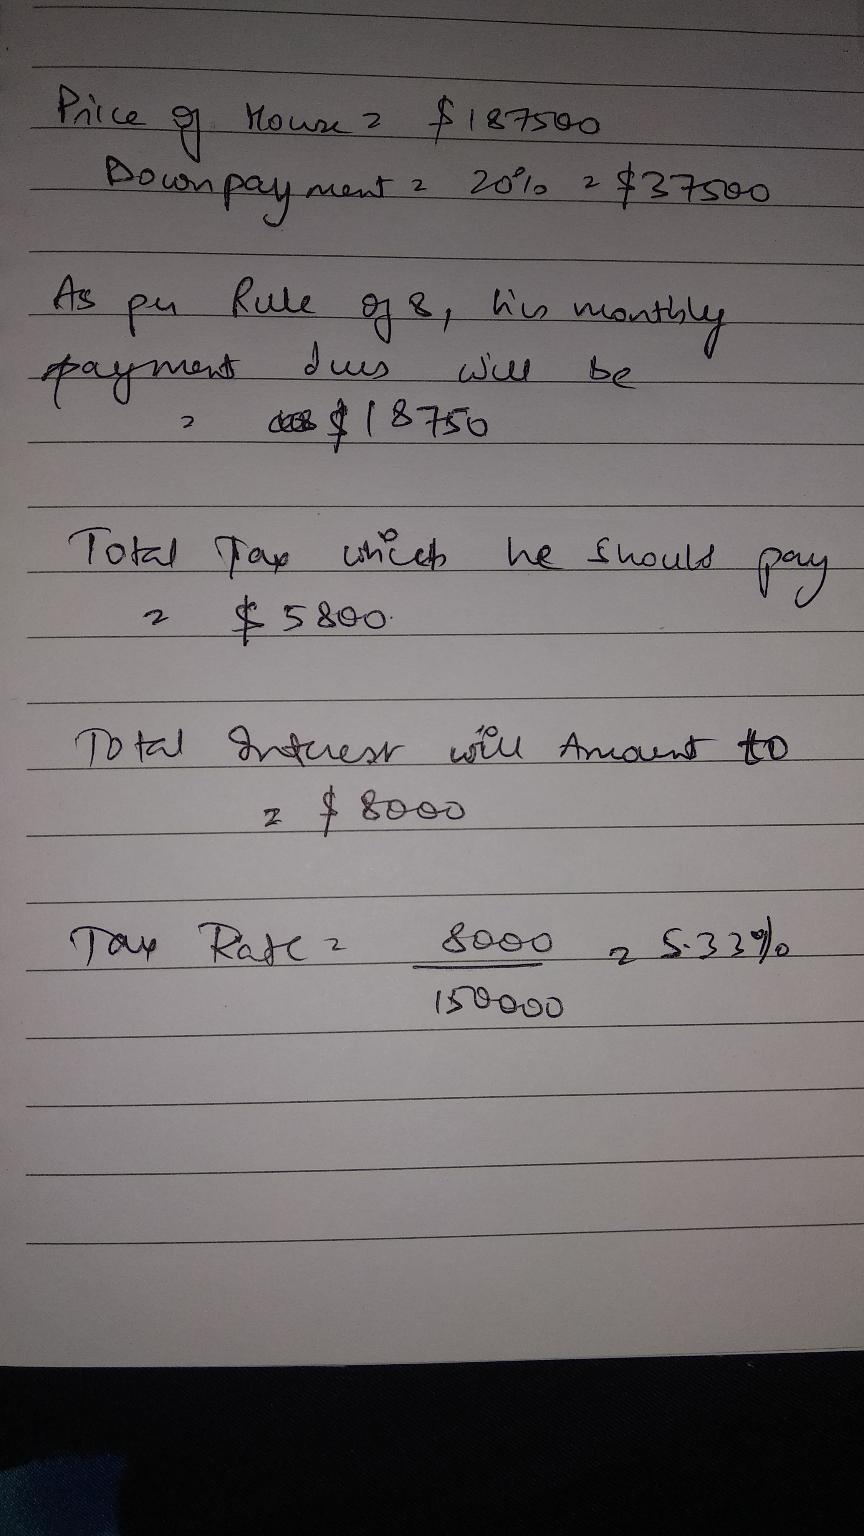 Price of House = $187500
Down payment = 20% = $37500
As per Rule of 8, his monthly
payment dues will be
= $18750
Total Tax which he should pay
= $5800.
Total Interest will Amount to
= $8000
Tax Rate = 8000 = 5.33%
150000